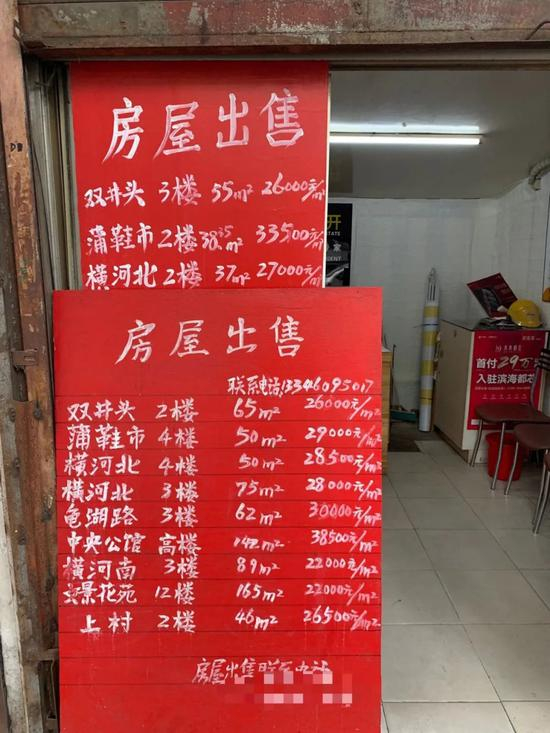 房屋出售
双井头 3楼 55m² 26000元/m²
蒲鞋市 2楼 38.35m² 33500元/m²
横河北 2楼 37m² 27000元/m²
房屋出售
联系电话13346095017
双井头 2楼 65m² 26000元/m²
蒲鞋市 4楼 50m² 29000元/m²
横河北 4楼 50m² 28500元/m²
横河北 3楼 75m² 28000元/m²
龟湖路 3楼 62m² 30000元/m²
中央公馆 高楼 142m² 38500元/m²
横河南 3楼 89m² 22000元/m²
景花苑 12楼 165m² 22000元/m²
上村 2楼 46m² 26500元/m²
房屋出售
开
ESTATE
DENT
首付29万
入驻滨海都芯